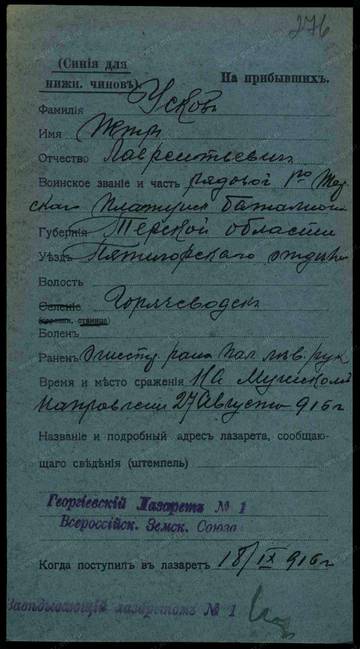 276
(Синія для
нижн. чиновъ)
На прибывшихъ.
Фамилія Усковъ
Имя Петръ
Отчество Лаврентьевич
Воинское званіе и часть рядовой 1го
скаго Пластунск баталіона
Губернія Терской области
Уѣздъ Пятигорскаго отдѣла
Волость
Селеніе Горячеводск
станица)
Боленъ
Раненъ рана пал лѣв. рук
Время и мѣсто сраженія На
направленіи 27 Августа 916 г
Названіе и подробный адресъ лазарета, сообщаю-
щаго свѣдѣнія (штемпель)
Георгіевскій Лазаретъ № 1
Всероссійск. Земск. Союза
Когда поступилъ въ лазаретъ 18/IX 916 г
Завѣдывающій лазаретомъ № 1